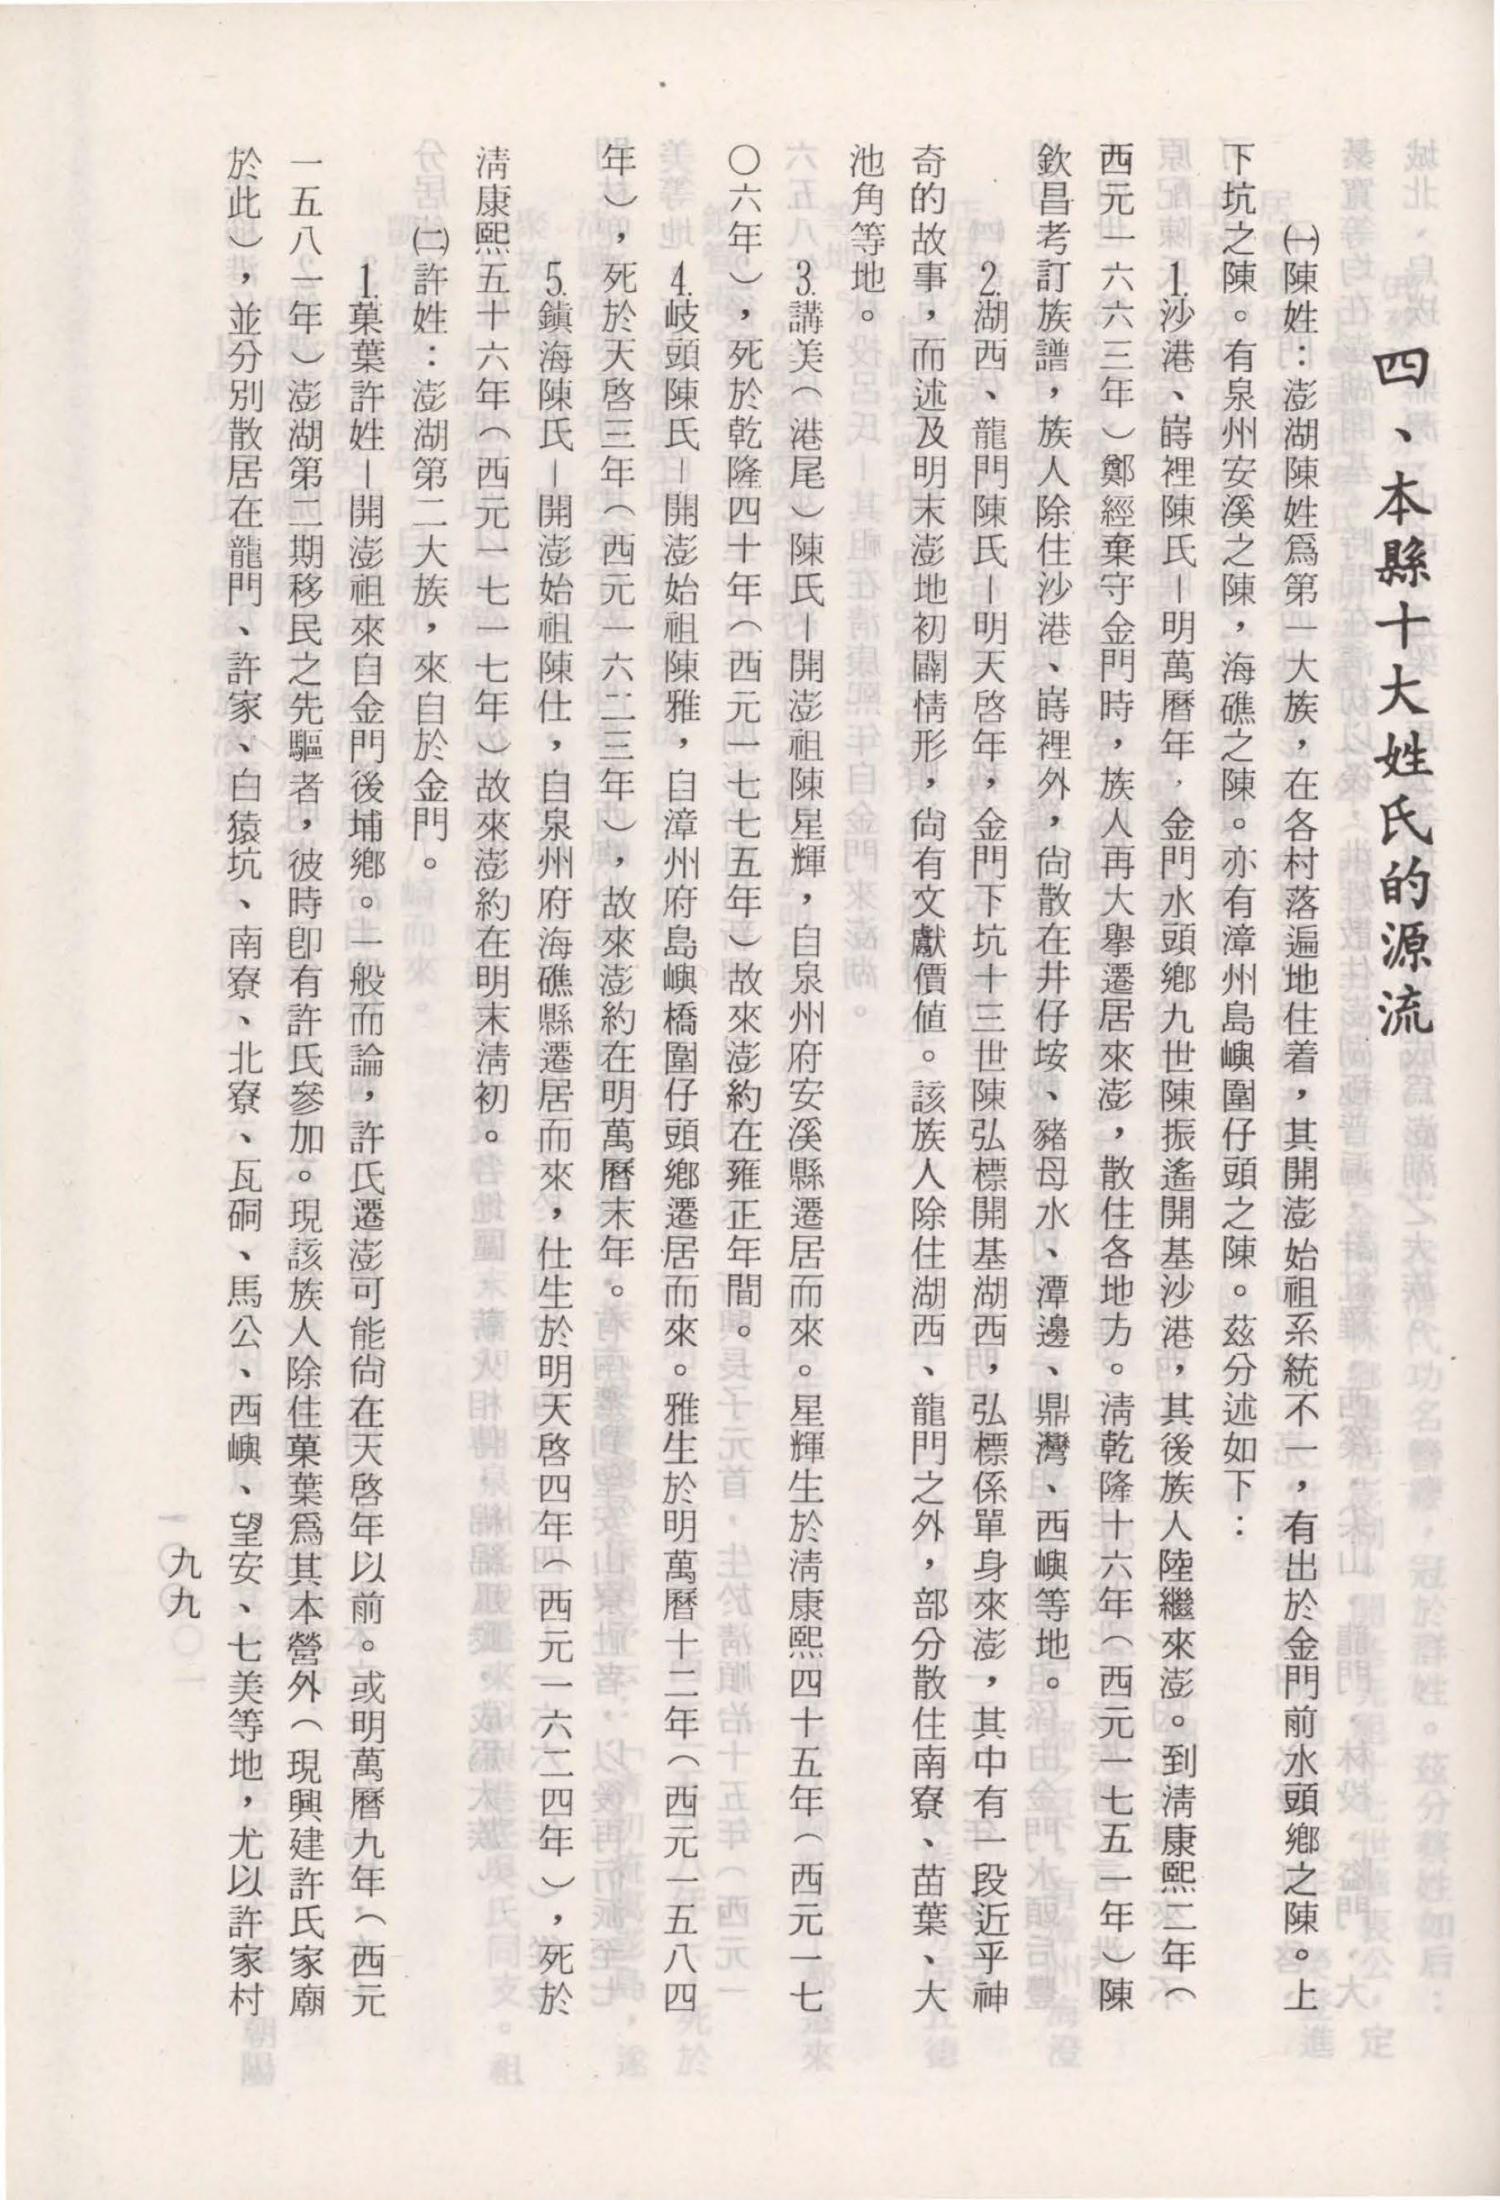 四、本縣十大姓氏的源流
㈠陳姓：澎湖陳姓爲第一大族，在各村落遍地住着，其開澎始祖系統不一，有出於金門前水頭鄉之陳。上
下坑之陳。有泉州安溪之陳，海礁之陳。亦有漳州島嶼圍仔頭之陳。茲分述如下：
1.沙港、嵵裡陳氏—明萬曆年，金門水頭鄉九世陳振遙開基沙港，其後族人陸繼來澎。到淸康熙二年（
西元一六六三年）鄭經棄守金門時，族人再大舉遷居來澎，散住各地方。淸乾隆十六年（西元一七五一年）陳
欽昌考訂族譜，族人除住沙港、嵵裡外，尙散在井仔垵、豬母水、潭邊、鼎灣、西嶼等地。
2.湖西、龍門陳氏—明天啓年，金門下坑十三世陳弘標開基湖西，弘標係單身來澎，其中有一段近乎神
奇的故事，而述及明末澎地初闢情形，尙有文獻價値。該族人除住湖西、龍門之外，部分散住南寮、苗葉、大
池角等地。
3.講美（港尾）陳氏—開澎祖陳星輝，自泉州府安溪縣遷居而來。星輝生於淸康熙四十五年（西元一七
〇六年），死於乾隆四十年（西元一七七五年）故來澎約在雍正年間。
4.岐頭陳氏—開澎始祖陳雅，自漳州府島嶼橋圍仔頭鄉遷居而來。雅生於明萬曆十二年（西元一五八四
年），死於天啓三年（西元一六二三年），故來澎約在明萬曆末年。
5.鎭海陳氏—開澎始祖陳仕，自泉州府海礁縣遷居而來，仕生於明天啓四年（西元一六二四年），死於
淸康熙五十六年（西元一七一七年）故來澎約在明末淸初。
㈡許姓：澎湖第二大族，來自於金門。
1.菓葉許姓—開澎祖來自金門後埔鄉。一般而論，許氏遷澎可能尙在天啓年以前。或明萬曆九年（西元
一五八一年）澎湖第二期移民之先驅者，彼時卽有許氏參加。現該族人除住菓葉爲其本營外（現興建許氏家廟
於此），並分別散居在龍門、許家、白猿坑、南寮、北寮、瓦硐、馬公、西嶼、望安、七美等地，尤以許家村
九九